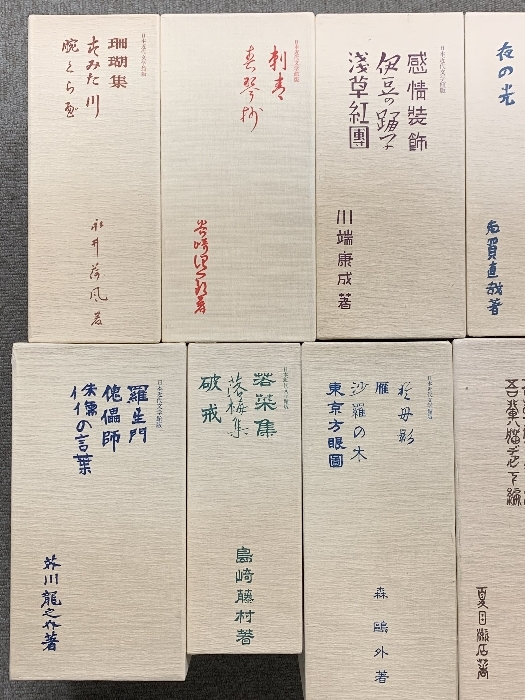 日本近代文学館版
珊瑚集
すみだ川
腕くらべ
永井荷風著
日本近代文学館版
刺青
春琴抄
谷崎潤一郎著
日本近代文学館版
感情装飾
伊豆の踊子
浅草紅團
川端康成著
夜の光
志賀直哉著
日本近代文学館版
羅生門
傀儡師
侏儒の言葉
芥川龍之介著
日本近代文学館版
落梅集
破戒
島崎藤村著
日本近代文学館版
雁
沙羅の木
東京方眼圖
森鷗外著
夏目漱石著